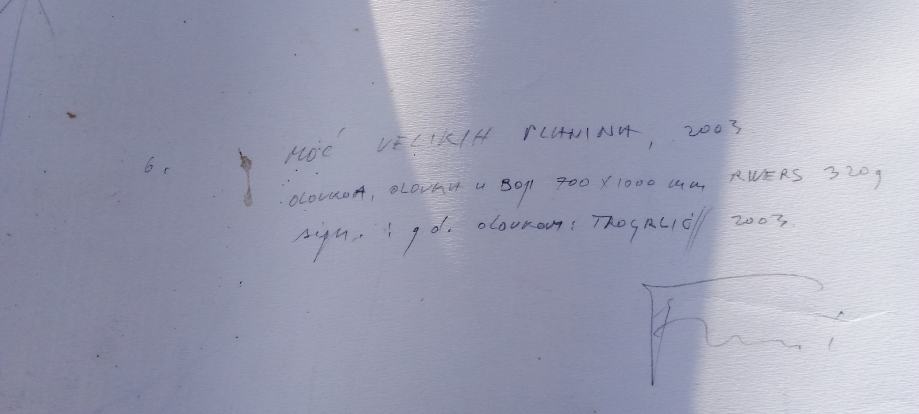 6. MOĆ VELIKIH PLANINA, 2003
OLOVKA, OLOVKA U BOJI 700 X 1000 mm RIVERS 320g
sign. i god. OLOVKOM: TROGRLIĆ// 2003.